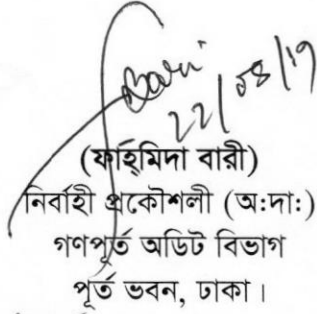 Bari
22/08/19
(ফাহ্‌মিদা বারী)
নির্বাহী প্রকৌশলী (অ:দা:)
গণপূর্ত অডিট বিভাগ
পূর্ত ভবন, ঢাকা।